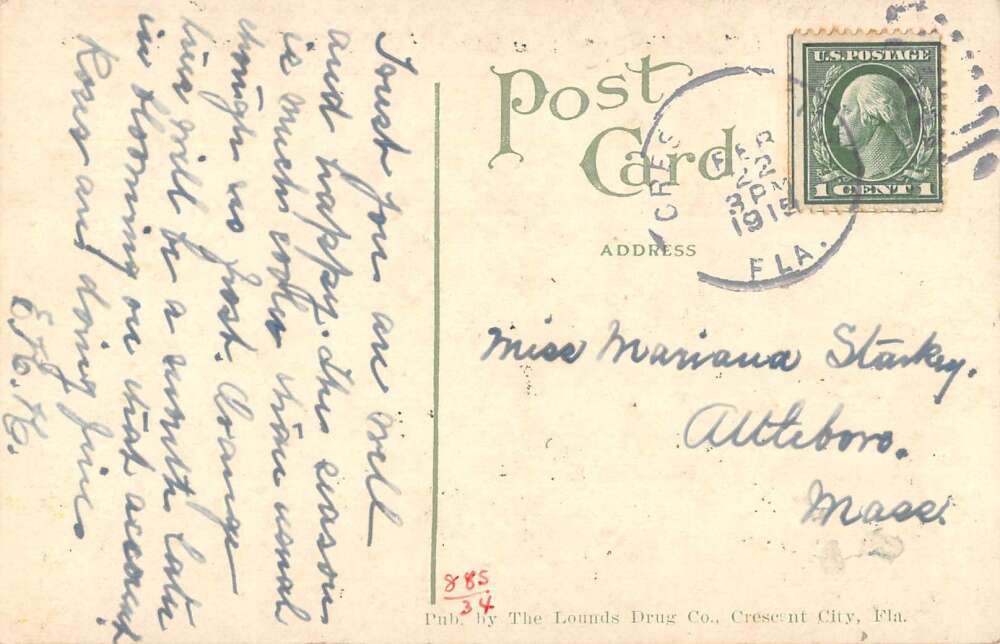 Trust you are well
and happy. This season
is much cooler than usual
though no frost. Orange
time will be a month late
in blooming on that account
Ross and doing fine.
E. K. K.
Post
Card
ADDRESS
U.S. POSTAGE
1 CENT 1
CRES
FEB
22
3 PM
1915
FLA.
Miss Mariana Starkey.
Attleboro.
Mass.
885
34
Pub. by The Lounds Drug Co., Crescent City, Fla.